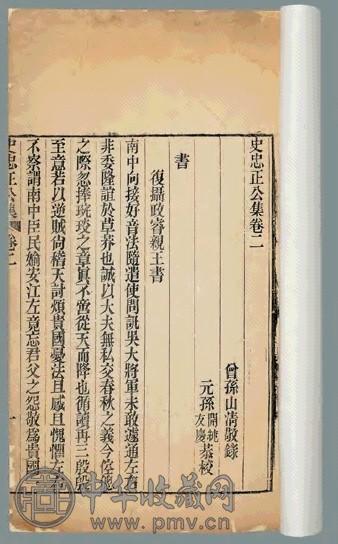 史忠正公集卷二
曾孫山清敬錄
元孫開純
友慶恭校
書
復攝政睿親王書
南中向接好音法隨遣使問訊吳大將軍未敢遽通左右
非委隆誼於草莽也誠以大夫無私交春秋之義今倥傯
之際忽捧琬琰之章真不啻從天而降也循讀再三殷殷
至意若以逆賊尚稽天討煩貴國憂法且感且愧懼左右
不察謂南中臣民媮安江左竟忘君父之怨敬為貴國
史忠正公集 卷二 一
中华收藏网
www.pmv.cn